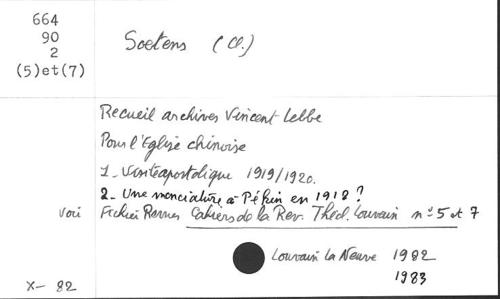 664
90
2
(5)et(7)
Soetens (Cl.)
Recueil archives Vincent Lebbe
Pour l'Eglise chinoise
1_ Visite apostolique 1919/1920.
2_ Une nonciature à Pékin en 1918 ?
voir Fichier Revues Cahiers de la Rev. Théol. Louvain nº 5 et 7
Louvain La Neuve 1982
1983
X- 82